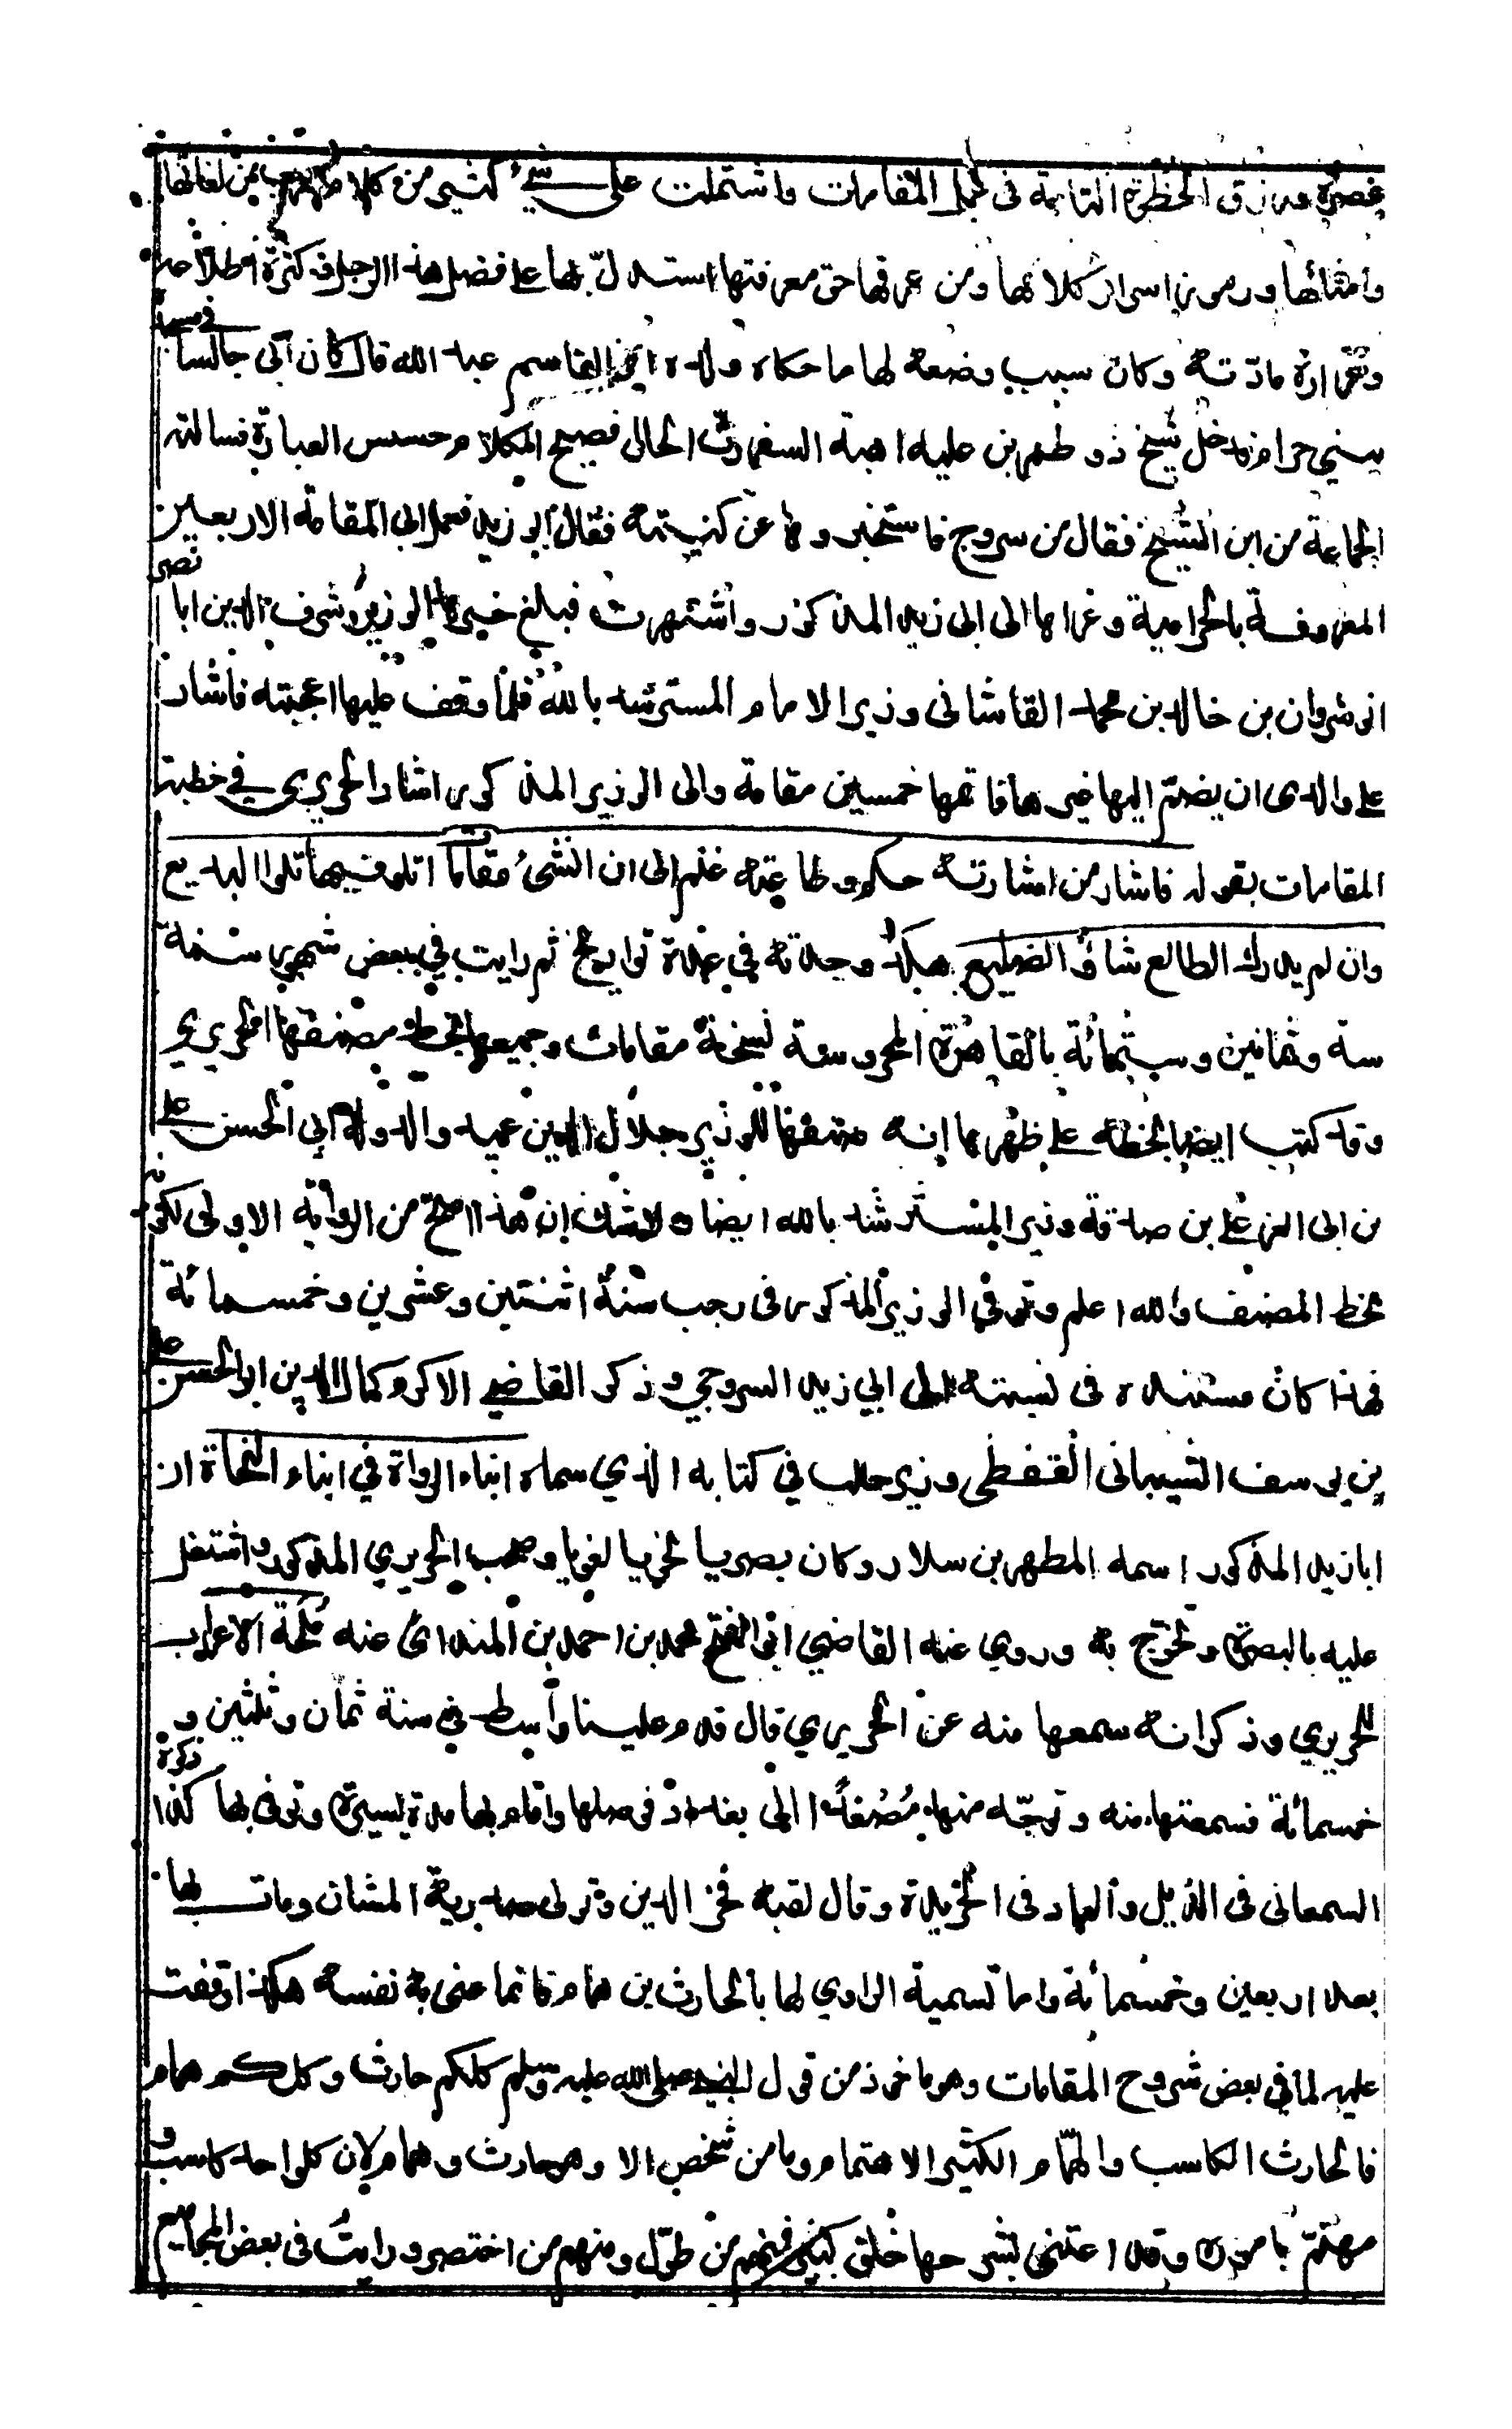 عصره ورزق الحظوة التامة فى عمل المقامات واشتملت على شيء كثير من كلام العرب من لغاتها
وامثالها ورموز اسرار كلامها ومن عرفها حق معرفتها استدل بها على فضل هذا الرجل وكثرة اطلاعه
وغزارة مادته وكان سبب وضعه لها ما حكاه ولده ابو القاسم عبد الله قال كان ابى جالسا فى مسجد
ببني حرام فدخل شيخ ذو طمرين عليه اهبة السفر رث الحال فصيح الكلام حسن العبارة فسالته
الجماعة من اين الشيخ فقال من سروج فاستخبروه عن كنيته فقال ابو زيد فعمل ابى المقامة الاربعين
المعروفة بالحرامية وعزاها الى ابى زيد المذكور واشتهرت فبلغ خبرها الوزير شرف الدين ابا نصر
انوشروان بن خالد بن محمد القاشانى وزير الامام المسترشد بالله فلما وقف عليها اعجبته فاشار
على والدى ان يضم اليها غيرها فاتمها خمسين مقامة والى الوزير المذكور اشار الحريري في خطبة
المقامات بقوله فاشار من اشارته حكم وطاعته غنم الى ان انشئ مقامات اتلو فيها تلو البديع
وان لم يدرك الظالع شاو الضليع هكذا وجدته في عدة تواريخ ثم رايت في بعض شهور سنة
ستة وثمانين وستمائة بالقاهرة المحروسة نسخة مقامات وجميعها بخط مصنفها الحريري
وقد كتب ايضا بخطه على ظهرها انه صنفها للوزير جلال الدين عميد الدولة ابي الحسن على
بن ابى العز على بن صدقة وزير المسترشد بالله ايضا ولا شك ان هذا اصح من الرواية الاولى لكونه
بخط المصنف والله اعلم وتوفي الوزير المذكور فى رجب سنة اثنتين وعشرين وخمسمائة
فهذا كان مستنده فى نسبته الى ابي زيد السروجي وذكر القاضي الاكرم كمال الدين ابو الحسن على
بن يوسف الشيبانى القفطى وزير حلب في كتابه الذي سماه انباه الرواة في ابناء النحاة ان
ابا زيد المذكور اسمه المطهر بن سلار وكان بصريا نحويا لغويا وصحب الحريري المذكور واشتغل
عليه بالبصرة وتخرج به وروى عنه القاضي ابو الفتح محمد بن احمد بن المندائى عنه ملحة الاعراب
للحريري وذكر انه سمعها منه عن الحريري قال قدم علينا واسط في سنة ثمان وثلثين و
خمسمائة فسمعتها منه وتوجه منها مصعدا الى بغداد فوصلها واقام بها مدة يسيرة وتوفى بها كذا ذكره
السمعانى فى الذيل والعماد فى الخريدة وقال لقبه فخر الدين وتولى صدرية المشان ومات بها
بعد اربعين وخمسمائة واما تسمية الراوي لها بالحارث بن همام فانما عنى به نفسه هكذا وقفت
عليه فى بعض شروح المقامات وهو ماخوذ من قول النبي صلى الله عليه وسلم كلكم حارث وكلكم همام
فالحارث الكاسب والهمام الكثير الاهتمام وما من شخص الا وهو حارث وهمام لان كل واحد كاسب و
مهتم باموره وقد اعتنى بشرحها خلق كثير فمنهم من طول ومنهم من اختصر ورايت فى بعض المجاميع